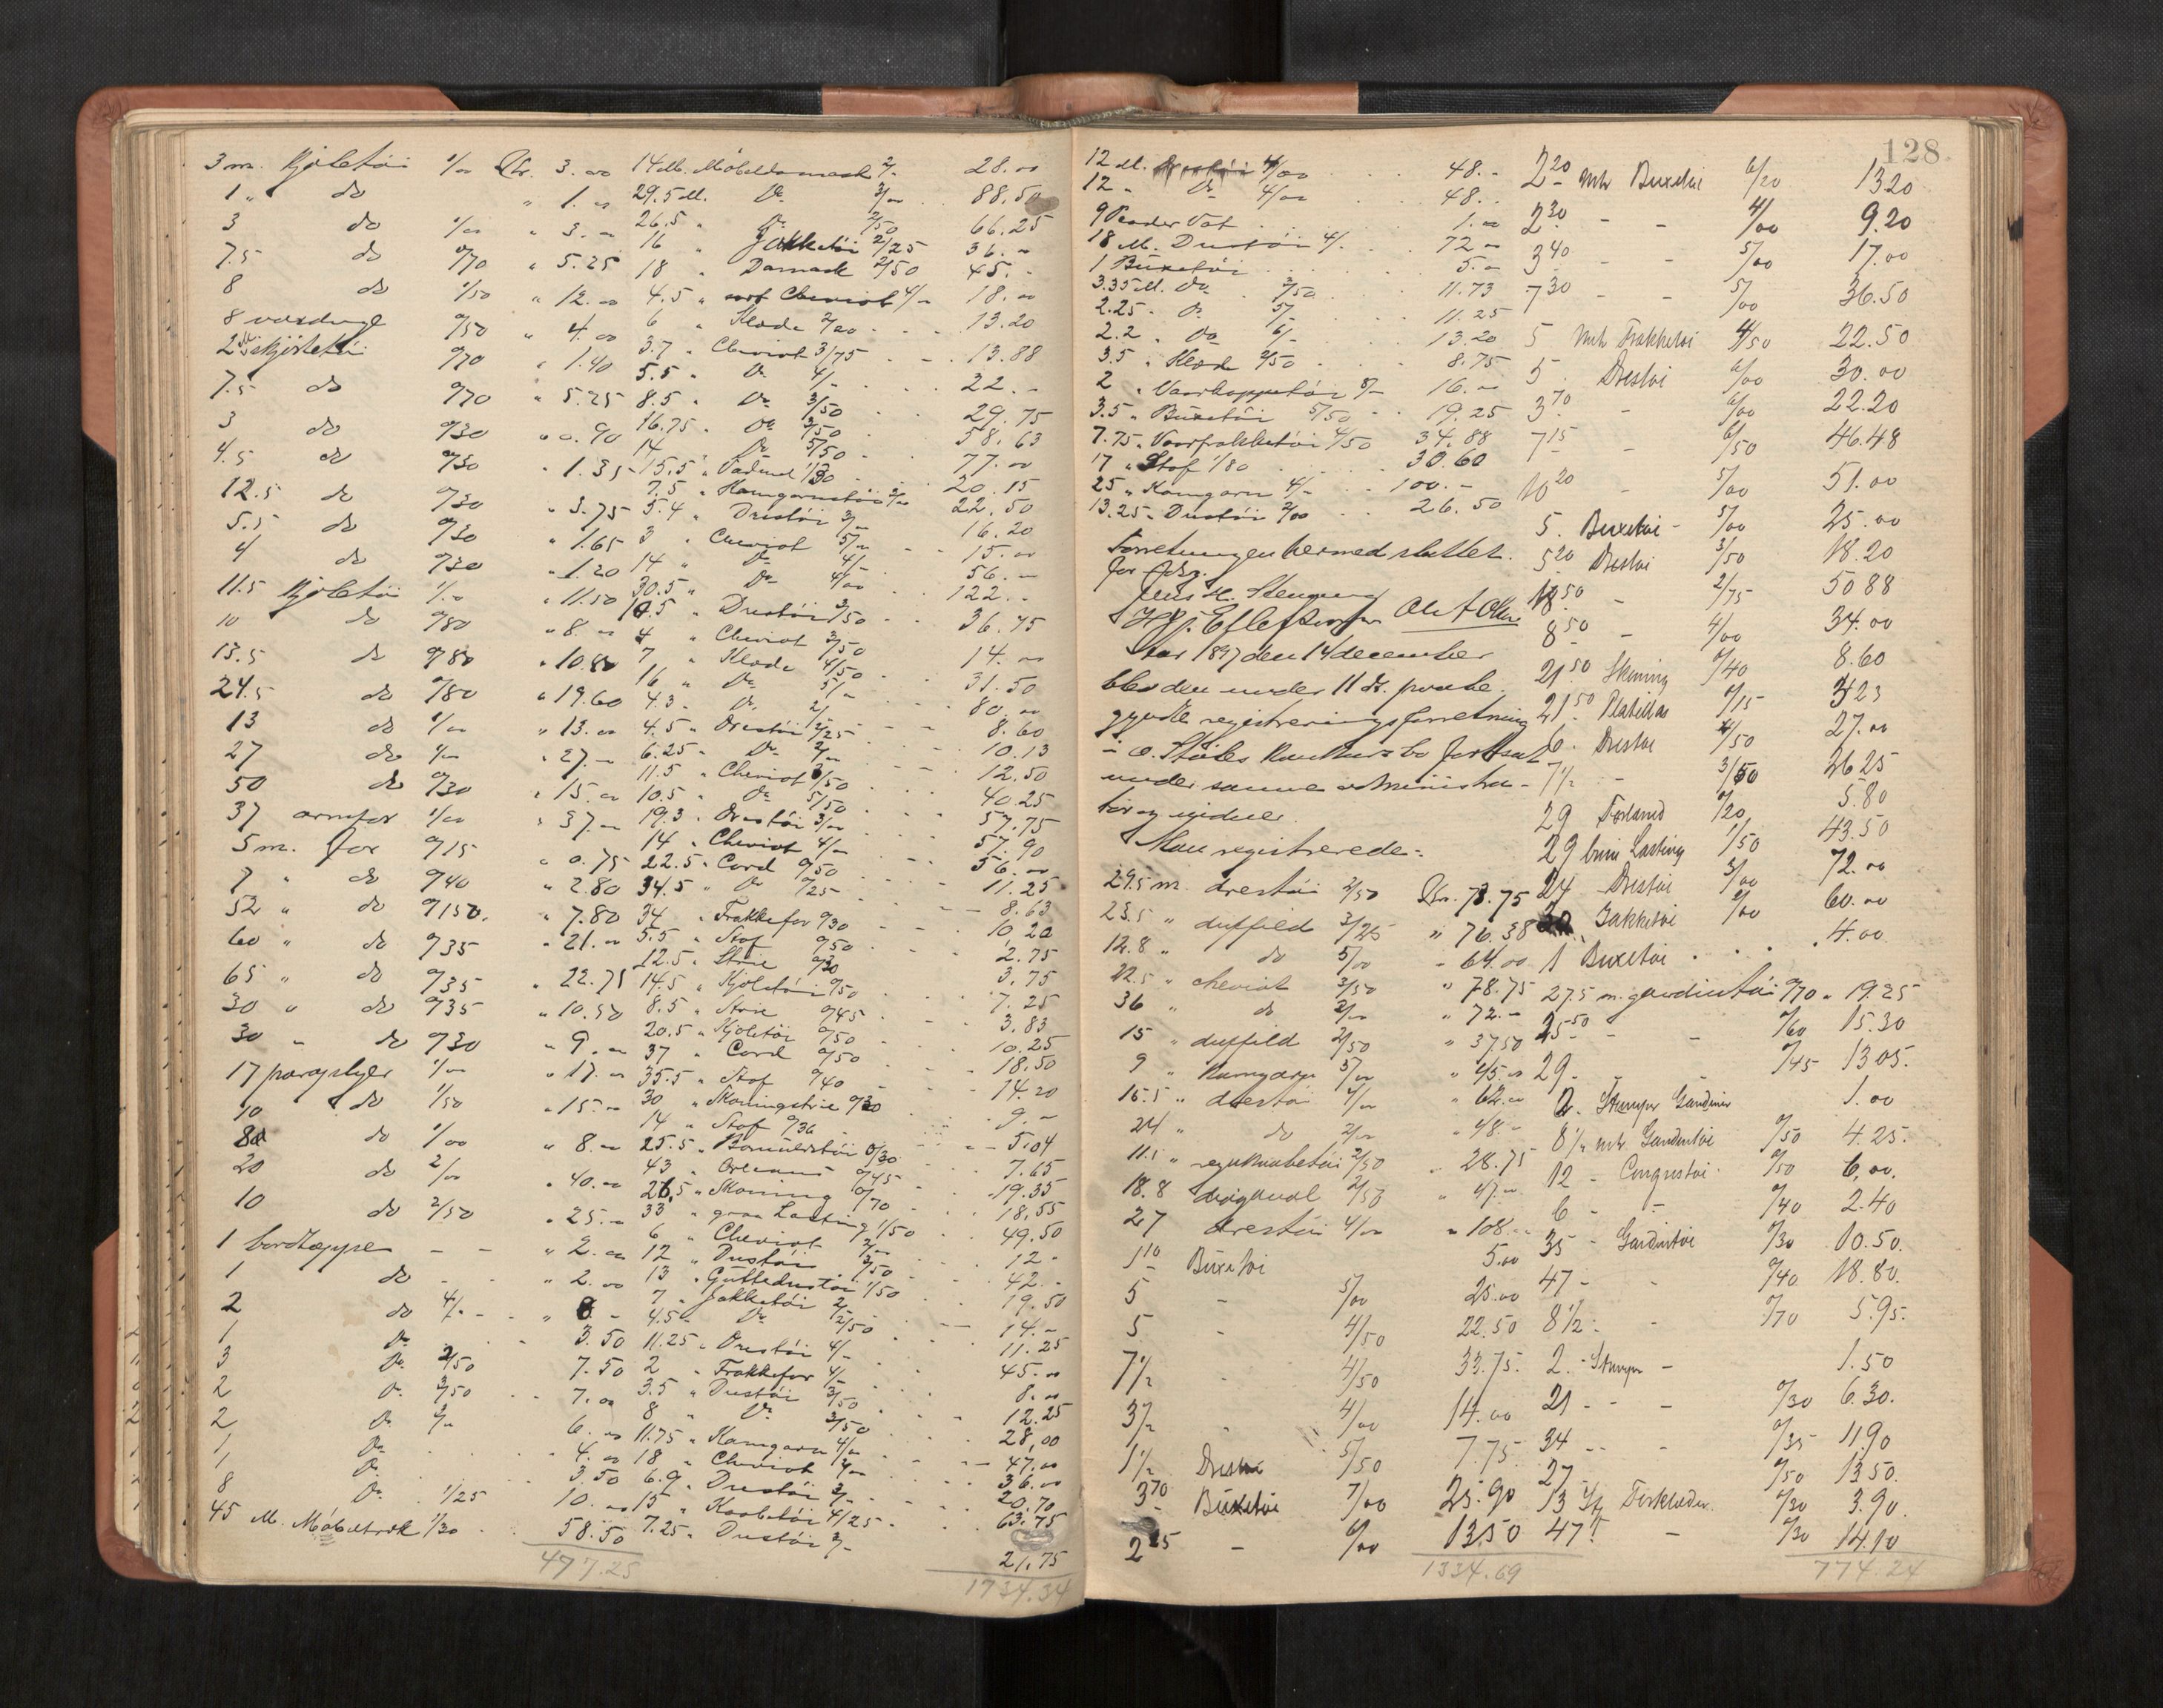 3 m. Kjoletøi 1/00 Kr. 3.00
1 " do " 1.00
3 do 1/00 " 3.00
7.5 do 0/70 " 5.25
8 do 1/50 " 12.00
8 voxduge 0/50 " 4.00
2 skjørtetøi 0/70 " 1.40
7.5 do 0/70 " 5.25
3 do 0/30 " 0.90
4.5 do 0/30 " 1.35
12.5 do 0/30 " 3.75
5.5 do 0/30 " 1.65
4 do 0/30 " 1.20
11.5 Kjoletøi 1/00 " 11.50
10 do 0/80 " 8.00
13.5 do 0/80 " 10.80
24.5 do 0/80 " 19.60
13 do 1/00 " 13.00
27 do 1/00 " 27.00
50 do 0/30 " 15.00
37 armfor 1/00 " 37.00
5 m. for 0/15 " 0.75
7 " do 0/40 " 2.80
52 " do 0/15 " 7.80
60 " do 0/35 " 21.00
65 " do 0/35 " 22.75
30 " do 0/35 " 10.50
30 " do 0/30 " 9.00
17 paraplyer 1/00 " 17.00
10 do 1/50 " 15.00
8 do 1/00 " 8.00
20 do 2/00 " 40.00
10 do 2/50 " 25.00
1 bordtæppe - - " 2.00
1 do - - " 2.00
2 do 4/- - " 8.-
1 Do 3.50
3 Do 2/50 7.50
2 Do 3/50 7.00
2 Do 3/00 6.00
1 Do 4.00
1 Do 3.50
8 Do 1/25 10.00
45 M. Møbeltræk 1/30 58.50
477.25
14 M. Møbeldamask 2/- 28.00
29.5 M. Do 3/00 88.50
26.5 " Do 2/50 66.25
16 " Jakketøi 2/25 36.00
18 " Damask 2/50 45.-
4.5 " sort Cheviot 4/- 18.00
6 " Klæde 2/20 13.20
3.7 " Cheviot 3/75 13.88
5.5 " Do 4/- 22.-
8.5 " Do 3/50 29.75
16.75 " Do 3/50 58.63
14 " Do 5/50 77.00
15.5 " Vadmel 1/30 20.15
7.5 " Kamgarnstøi 3/00 22.50
5.4 " Drestøi 3/- 16.20
3 " Cheviot 5/00 15.00
14 " Do 4/- 56.-
30.5 " Do 4/00 122.-
10.5 " Drestøi 3/50 36.75
4 " Cheviot 3/50 14.00
7 " Klæde 4/50 31.50
16 " Do 5/- 80.00
4.3 " Do 2/- 8.60
4.5 " Drestøi 2/25 10.13
6.25 " Do 2/00 12.50
11.5 " Cheviot 3/50 40.25
10.5 " Do 5/50 57.75
19.3 " Drestøi 3/00 57.90
14 " Cheviot 4/- 56.00
22.5 " Cord 0/50 11.25
34.5 " Do 0/25 8.63
34 " Frakkefor 0/30 10.20
5.5 " Stof 0/50 2.75
12.5 " Strie 0/30 3.75
14.5 " Kjoletøi 0/50 7.25
8.5 " Strie 0/45 3.83
20.5 " Kjoletøi 0/50 10.25
37 " Cord 0/50 18.50
35.5 " Stof 0/40 14.20
30 " Skoningstrie 0/30 9.-
14 " Stof 0/36 5.04
25.5 " Bomuldstøi 0/30 7.65
43 " Orleans 0/45 19.35
26.5 " Skoning 0/70 18.55
33 " graa Lasting 1/50 49.50
6 " Cheviot 2/00 12.-
12 " Drestøi 3/50 42.-
13 " Guttedrestøi 1/50 19.50
7 " Jakketøi 2/- 14.-
4.5 " Do 2/50 11.25
11.25 " Drestøi 4/- 45.00
2 " Frakkefor 4/- 8.00
3.5 " Drestøi 3/50 12.25
8 " Do 3/50 28,00
11.75 " Kamgarn 4/00 47.00
18 " Cheviot 2/00 36.00
6.9 " Drestøi 3/- 20.70
15 " Kaabetøi 4/25 63.75
7.25 " Drestøi 3/- 21.75
1734.34
128.
12 M. Drestøi 4/00 48.-
12 " Do 4/00 48.-
9 Pakker Vat 1.00
18 M. Drestøi 4/- 72.00
1 Buxetøi 5.00
3.35 M. Do 3/50 11.73
2.25 " Do 5/- 11.25
2.2 " Do 6/- 13.20
3.5 " Klæde 2/50 8.75
2 " Vaarkappetøi 8/- 16.00
3.5 " Buxetøi 5/50 19.25
7.75 " Vaarfrakketøi 4/50 34.88
17 " Stof 1/80 30.60
25 " Kamgarn 4/- 100.-
13.25 " Drestøi 2/00 26.50
Forretningen hermed sluttet.
Aar 1897 den 14 december
blev den under 11 ds. paabe-
gyndte registreringsforretning
i O. Støles Konkursbo fortsat
under samme administra-
tor og vidner.
Man registrerede:
29.5 m. drestøi 2/50 Kr. 73.75
23.5 " duffeld 3/25 " 76.38
12.8 " do 5/00 " 64.00
22.5 " cheviot 3/50 " 78.75
36 " do 2/00 " 72.-
15 " duffeld 2/50 " 37.50
9 " kamgarn 5/00 " 45.00
15.5 " drestøi 4/00 " 62.00
24 " do 2/00 " 48.-
11.5 " regnkaabetøi 2/50 " 28.75
18.8 diagonal 2/50 " 47.00
27 drestøi 4/00 " 108.-
1.10 Buxetøi 5.00
5 - 5/00 25.00
5 - 4/50 22.50
7 1/2 - 4/50 33.75
3 1/2 " 4/00 14.00
1 1/2 Drestøi 5/50 7.75
3.70 Buxetøi 7/00 25.90
2.25 - 6/00 13.50
1334.69
2.20 mtr Buxetøi 6/00 13.20
2.30 - - 4/00 9.20
3.40 - - 5/00 17.00
7.30 - - 5/00 36.50
5 mtr Frakketøi 4/50 22.50
5 - Drestøi 6/00 30.00
3.70 - 6/00 22.20
7.15 - 6/50 46.48
10.20 - 5/00 51.00
5. Buxetøi - 5/00 25.00
5.20 Drestøi 3/50 18.20
18.50 - 2/75 50.88
8.50 - 4/00 34.00
21.50 Skoning 0/40 8.60
21.50 Platillas 0/15 3.23
6. Drestøi 4/50 27.00
7 1/2 - 3/50 26.25
29 Forlærred 0/20 5.80
29 brun Lasting 1/50 43.50
24 Drestøi 3/00 72.00
20 Jakketøi 3/00 60.00
1 Buxetøi 4.00
27.5 m. gardintøi 0/70 " 19.25
25.50 - - 0/60 15.30
29 - - 0/45 13.05
2. Stumper Gardiner 1.00
8 1/2 mtr. Gardintøi 0/50 4.25
12 - Congrestøi 0/50 6,00
6 - - 0/40 2.40
35 - Gardintøi 0/30 10.50
47 - - 0/40 18.80
8 1/2 - - 0/70 5.95
2. Stumper - 1.50
21 - - 0/30 6.30
34 - - 0/35 11.90
27 - - 0/50 13.50
13 Stk Forklæder 0/30 3.90
47 - 0/30 14.10
774.24